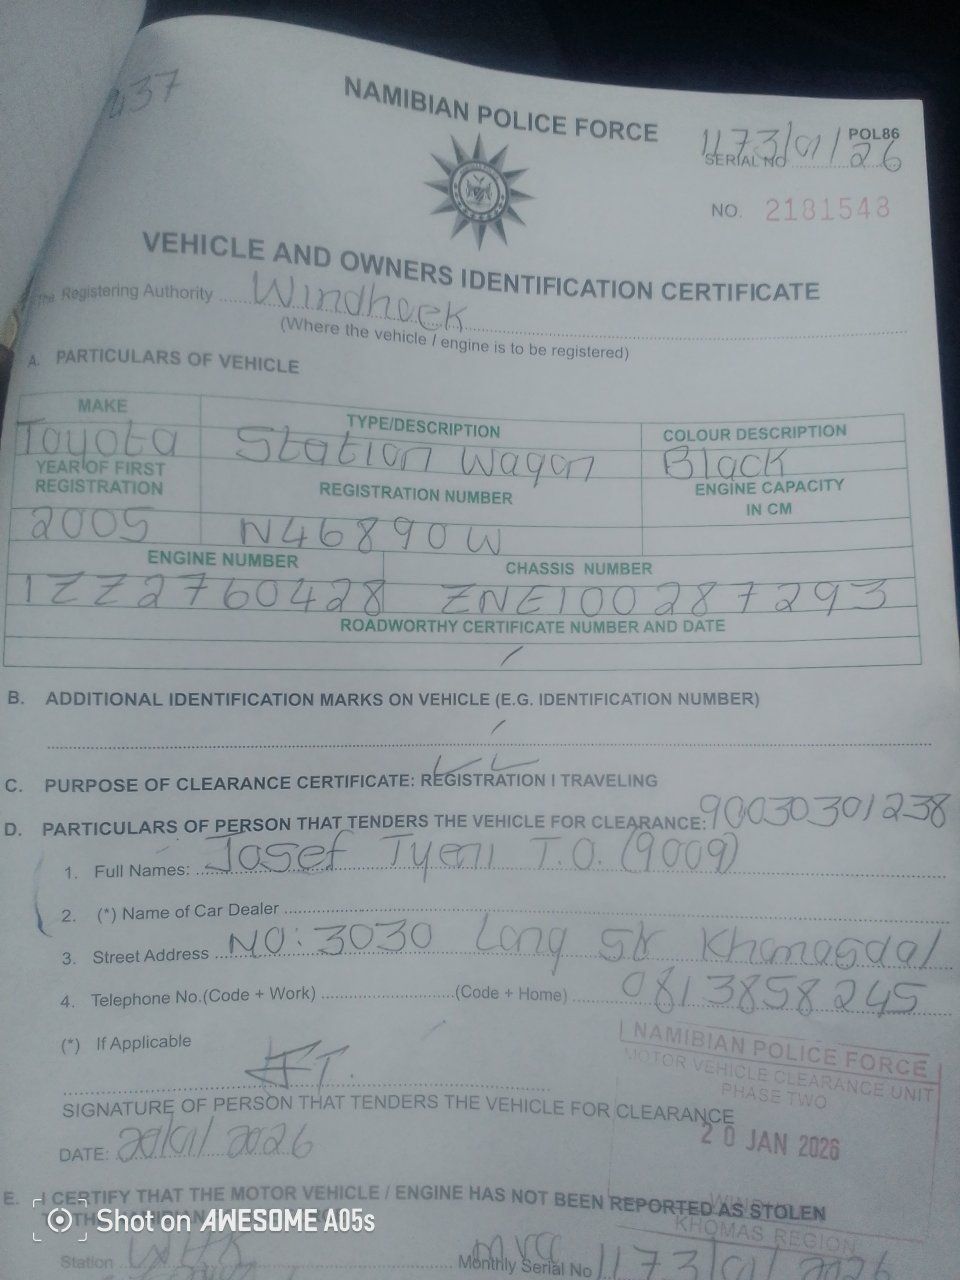 437
NAMIBIAN POLICE FORCE
POL86
SERIAL NO 1173/01/26
NO. 2181543
VEHICLE AND OWNERS IDENTIFICATION CERTIFICATE
The Registering Authority Windhoek
(Where the vehicle / engine is to be registered)
A. PARTICULARS OF VEHICLE
MAKE TYPE/DESCRIPTION COLOUR DESCRIPTION
Toyota Station Wagon Black
YEAR OF FIRST REGISTRATION REGISTRATION NUMBER ENGINE CAPACITY IN CM
2005 N46890W
ENGINE NUMBER CHASSIS NUMBER
1ZZ2760428 ZNE100287293
ROADWORTHY CERTIFICATE NUMBER AND DATE
/
B. ADDITIONAL IDENTIFICATION MARKS ON VEHICLE (E.G. IDENTIFICATION NUMBER)
/
C. PURPOSE OF CLEARANCE CERTIFICATE: REGISTRATION I TRAVELING
D. PARTICULARS OF PERSON THAT TENDERS THE VEHICLE FOR CLEARANCE: 90030301238
1. Full Names: Josef Tyeni T.O. (9009)
2. (*) Name of Car Dealer
3. Street Address NO: 3030 Long Str Khomasdal
4. Telephone No.(Code + Work) (Code + Home) 0813858245
(*) If Applicable
NAMIBIAN POLICE FORCE
MOTOR VEHICLE CLEARANCE UNIT
PHASE TWO
SIGNATURE OF PERSON THAT TENDERS THE VEHICLE FOR CLEARANCE
20 JAN 2026
DATE: 20/01/2026
E. I CERTIFY THAT THE MOTOR VEHICLE / ENGINE HAS NOT BEEN REPORTED AS STOLEN
KHOMAS REGION
Shot on AWESOME A05s
Station WHK Monthly Serial No 1173/01/2026